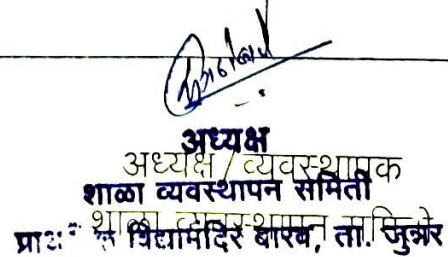 अध्यक्ष
अध्यक्ष / व्यवस्थापक
शाळा व्यवस्थापन समिती
शाळा व्यवस्थापन समिती
विद्यामंदिर बारव, ता. जुन्नर